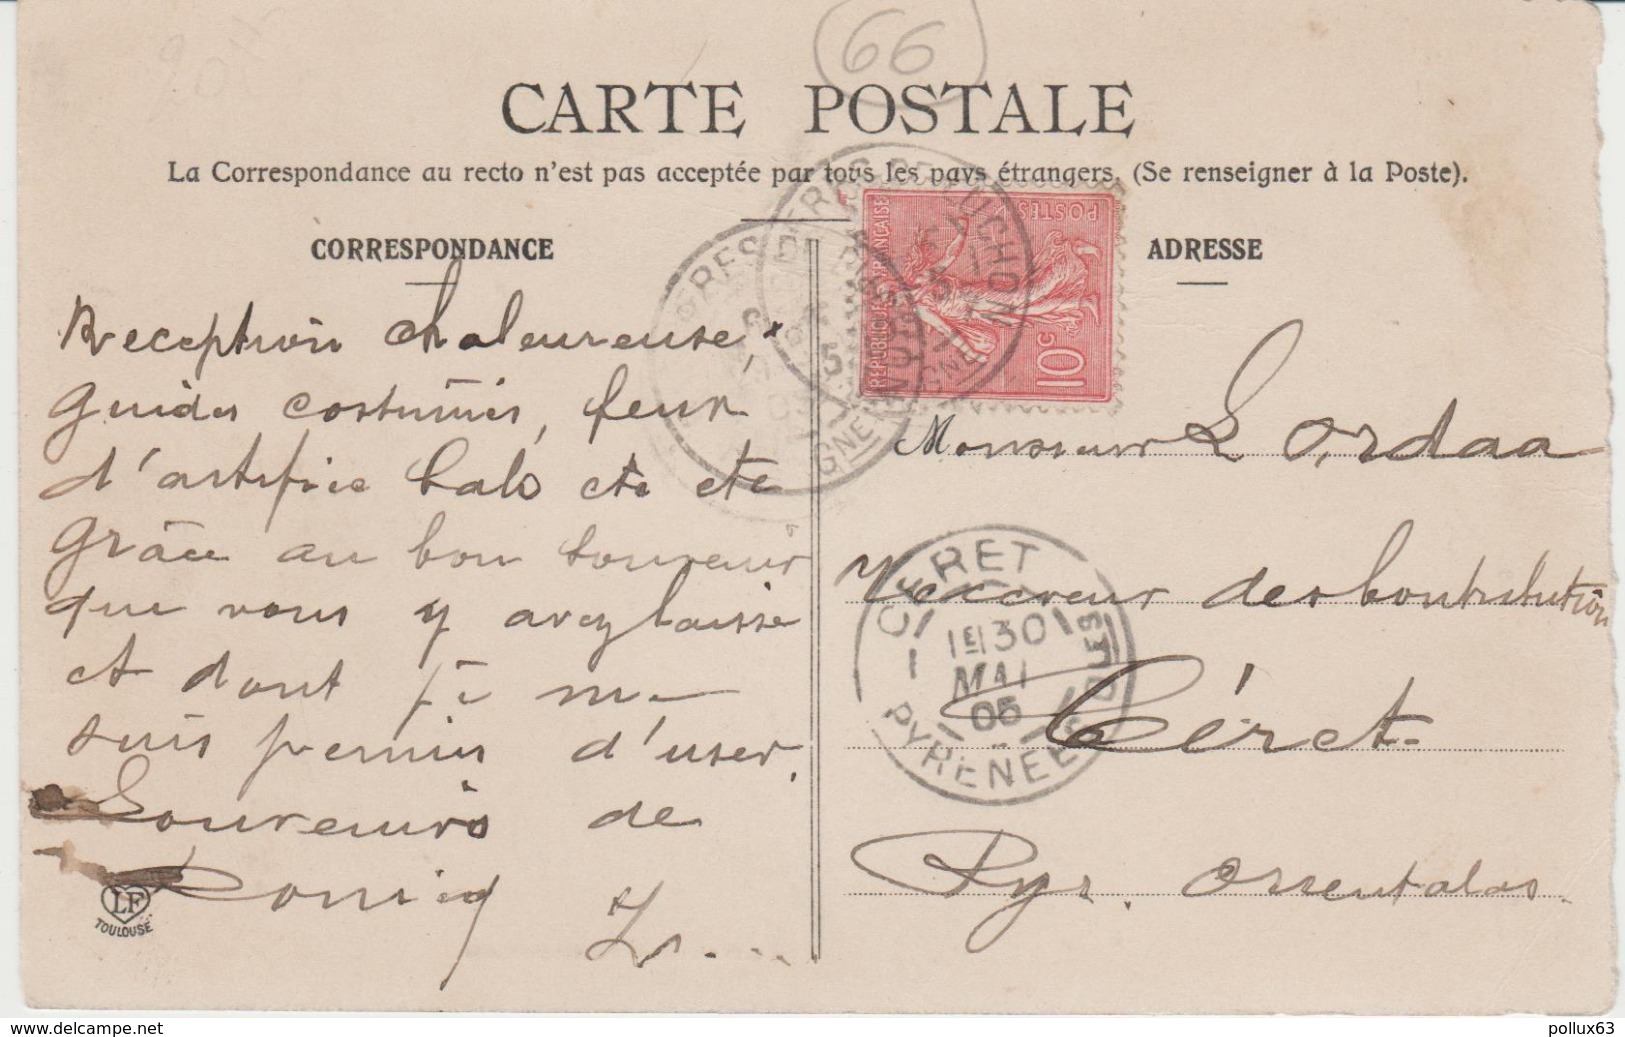 66
CARTE POSTALE
La Correspondance au recto n'est pas acceptée par tous les pays étrangers. (Se renseigner à la Poste).
CORRESPONDANCE
ADRESSE
Reception chaleureuse,
guides costumés, feux
d'artifice bals etc etc
grâce au bon souvenir
que vous y avez laissé
et dont je me
suis permis d'user.
Souvenirs de
LF
TOULOUSE
REPUBLIQUE FRANÇAISE
POSTES
10c
Monsieur L Ordaa
des Contributions
Céret
Pyr. Orientales
CERET
1E 30
MAI
05
PYRENEES
www.delcampe.net
pollux63